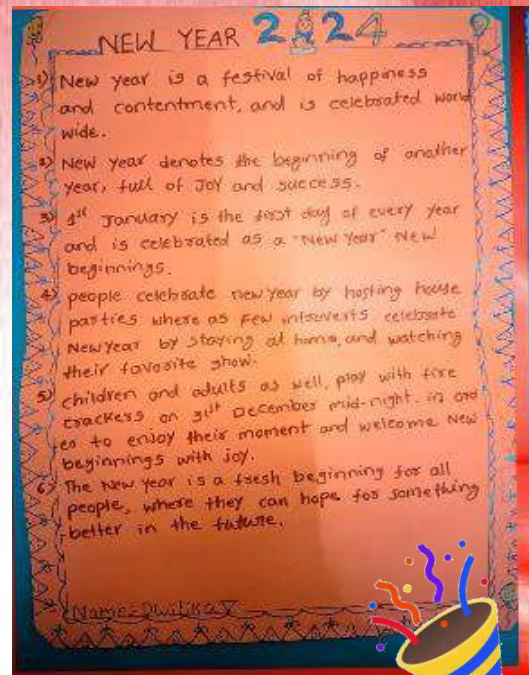 NEW YEAR 2024
1) New year is a festival of happiness
and contentment, and is celebrated world
wide.
2) New year denotes the beginning of another
year, full of Joy and success.
3) 1st January is the first day of every year
and is celebrated as a "New Year" New
beginnings.
4) people celebrate new year by hosting house
parties where as few introverts celebrate
New year by staying at home, and watching
their favorite show.
5) children and adults as well, play with fire
crackers on 31st December mid-night. in ord
er to enjoy their moment and welcome New
beginnings with joy.
6) The New year is a fresh beginning for all
people, where they can hope for something
better in the future.
Name:-